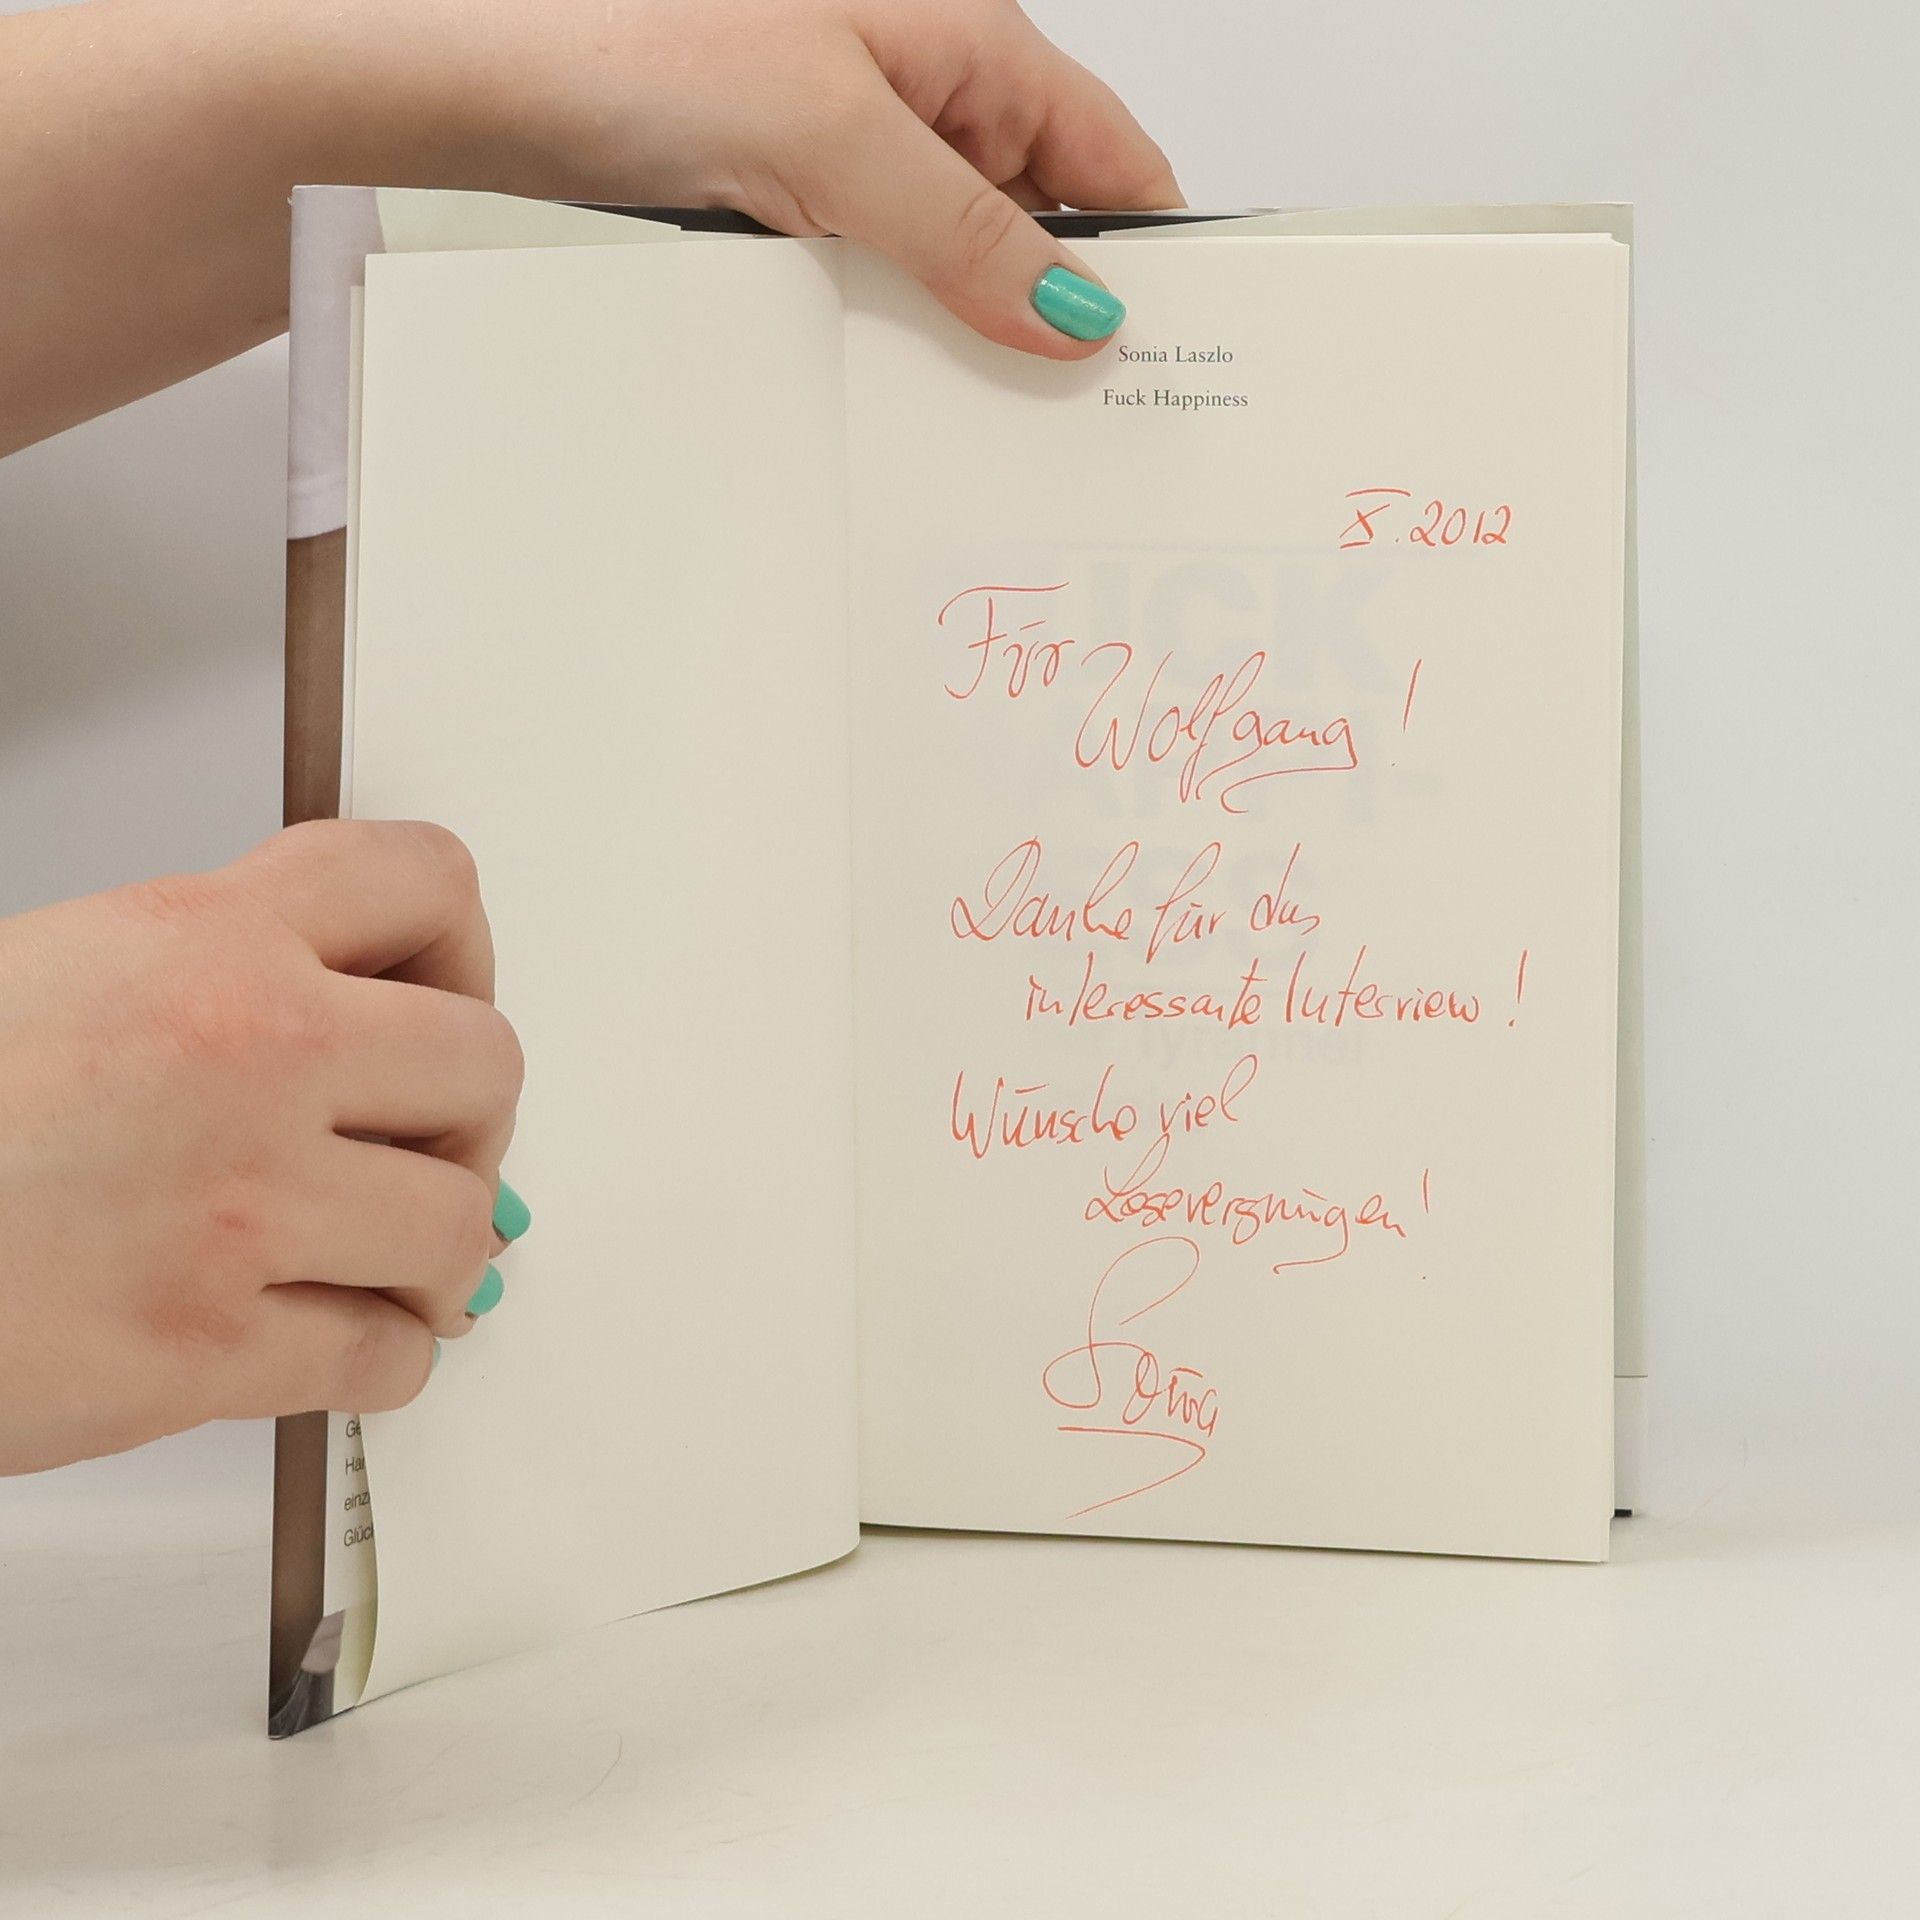 Sonia Laszlo
Fuck Happiness
X. 2012
Für
Wolfgang!
Danke für das
interessante Interview!
Wünsche viel
Lesevergnügen!
Sonia
Ge
Har
einz
Glüc